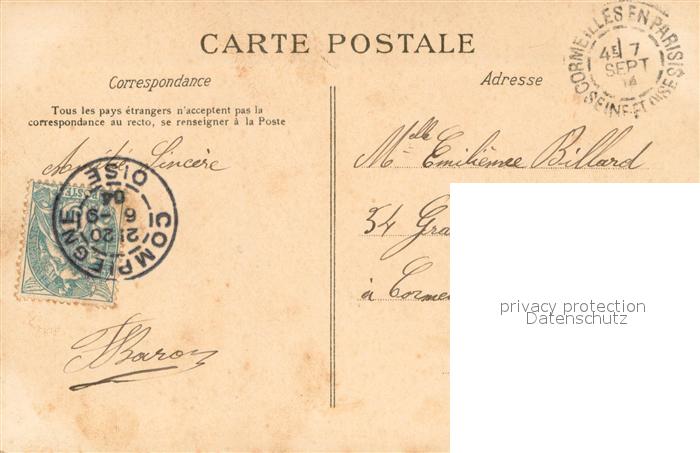 CARTE POSTALE
Correspondance
Tous les pays étrangers n'acceptent pas la
correspondance au recto, se renseigner à la Poste
Amitié Sincère
COMPIEGNE
21 20
6 -9
04
OISE
POSTE
Baron
Adresse
CORMEILLES EN PARISIS
4E 7
SEPT
SEINE-ET-OISE
Melle Emilienne Billard
34 Gra
à Corme
privacy protection
Datenschutz